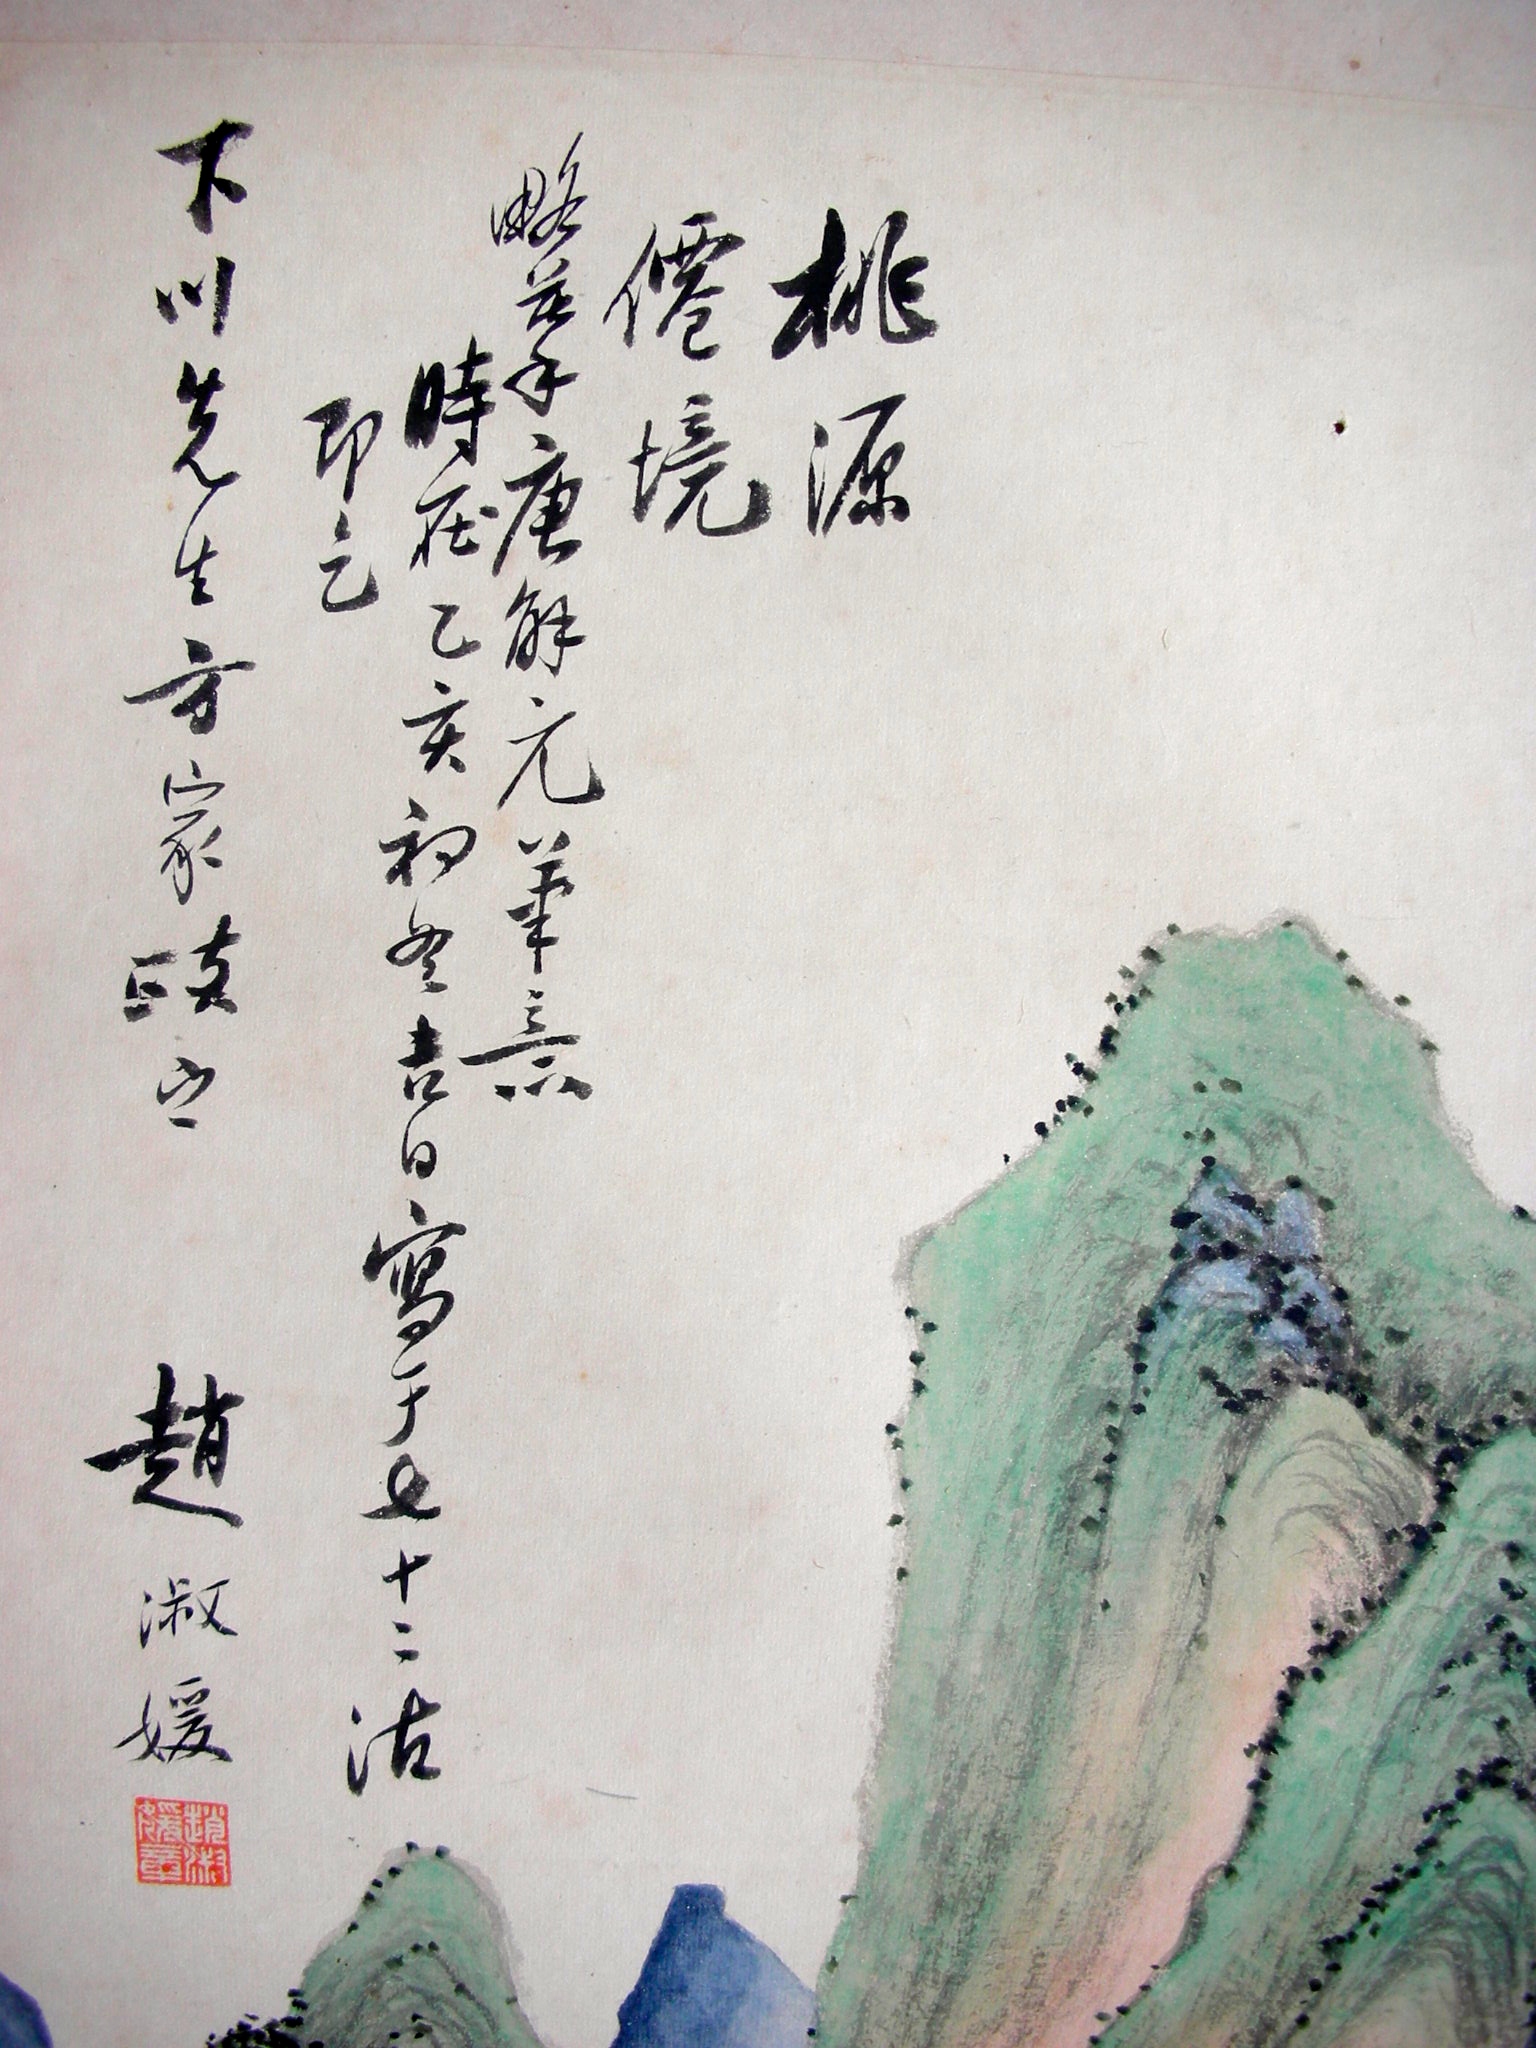 桃源
僊境
略摹唐解元筆意
時在乙亥初冬吉日寫于七十二沽
即乞
下川先生方家政之
趙淑媛
趙淑媛章